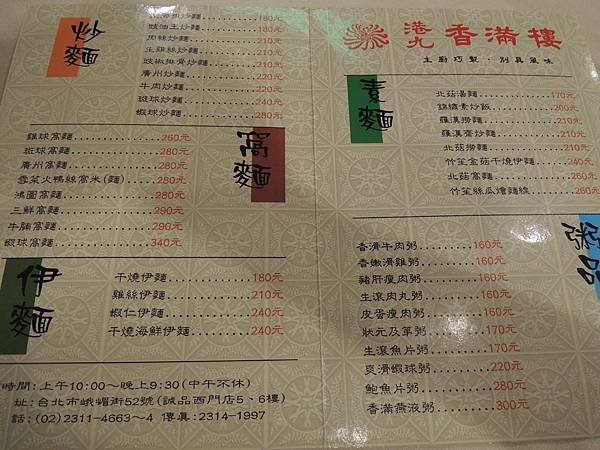 炒麵
180元
豉油王炒麵.........180元
肉絲炒麵.........180元
生雞絲炒麵.........210元
豉椒排骨炒麵.........210元
廣州炒麵.........220元
牛肉炒麵.........220元
斑球炒麵.........240元
蝦球炒麵.........240元
窩麵
雞球窩麵.........260元
斑球窩麵.........280元
廣州窩麵.........280元
雪菜火鴨絲窩米(麵)....280元
鴻圖窩麵.........280元
三鮮窩麵.........290元
牛腩窩麵.........290元
蝦球窩麵.........340元
伊麵
干燒伊麵.........180元
雞絲伊麵.........210元
蝦仁伊麵.........240元
干燒海鮮伊麵.........240元
時間:上午10:00~晚上9:30(中午不休)
址:台北市峨嵋街52號(誠品西門店5、6樓)
話:(02)2311-4663~4 傳真:2314-1997
港九香滿樓
主廚巧製·別具風味
素麵
北菇湯麵.........170元
錦繡素炒飯.........200元
羅漢撈麵.........210元
羅漢齋炒麵.........210元
北菇撈麵.........210元
竹笙金菇干燒伊麵....240元
北菇窩麵.........260元
竹笙絲瓜燴麵線......260元
粥品
香滑牛肉粥.........160元
香嫩滑雞粥.........160元
豬肝瘦肉粥.........160元
生滾肉丸粥.........160元
皮蛋瘦肉粥.........160元
狀元及第粥.........170元
生滾魚片粥.........170元
爽滑蝦球粥.........220元
鮑魚片粥.........280元
香滿燕液粥.........300元